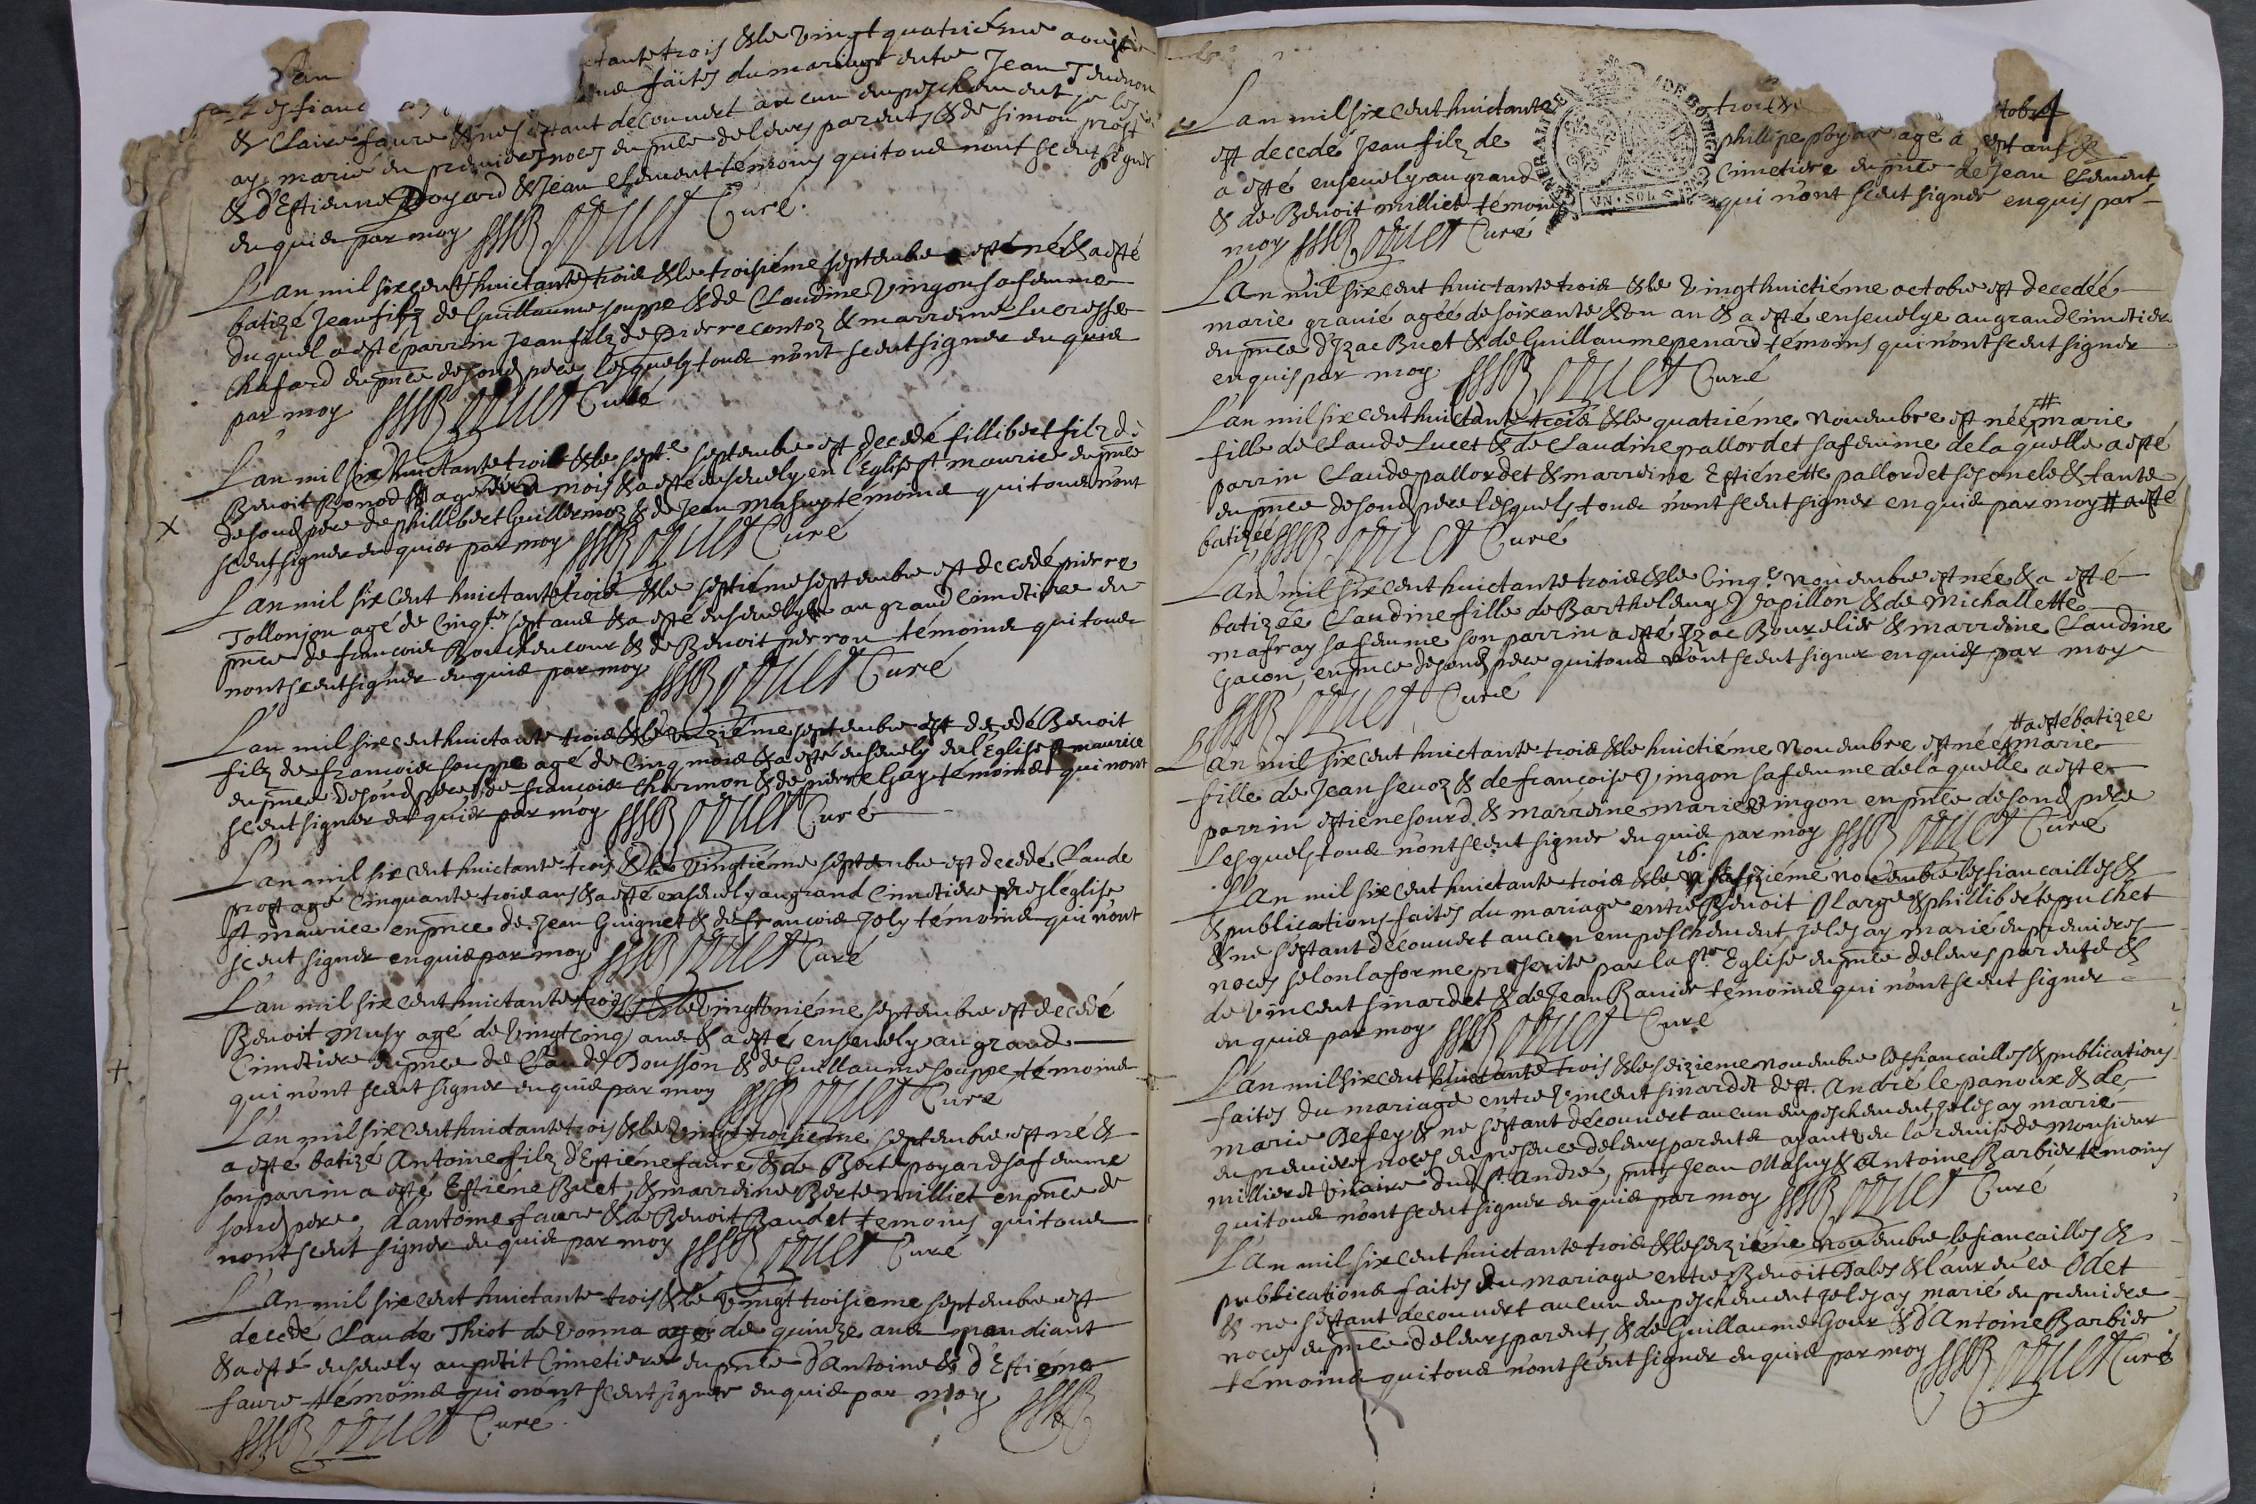 Lan tante trois & le vingt quatriéme aoust
les fianc faites du mariage entre Jean
& Claire faure & ne sestant decouvert aucun empeschement je les
ay marié en premieres noces en pnce de leurs parents & de simon prost
& d'Estienne Poyard & Jean Clement témoins qui tous nont sceut signer
enquis par moy Curé
L'an mil six cent huictante trois & le troisiéme septembre est né & a esté
batizé Jean filz de Guillaume souppe & de Claudine Vingon sa femme
duquel a esté parrin Jean filz de Pierre contoz & marreine Lucresse
Chafard en pnce de sond pere lesquels tous n'ont sceut signer enquis
par moy Curé
L'an mil six huictante trois & le sept.e septembre est decedé fillibert filz de
Benoit Bonod agé mois & a esté ensevely en l'Eglise st maurice en pnce
de sond pere de phillibert Guillermoz & de Jean Masuy témoins qui tous n'ont
sceut signer enquis par moy Curé
L'an mil six cent huictante trois & le septiéme septembre est decedé pierre
Tollonjon agé de cinq.te sept ans & a esté ensevely au grand cimetiere en
pnce de francois Bouchencour & de Benoit perron témoins qui tous
nont sceut signer enquis par moy Curé
L'an mil six cent huictante trois & le septembre est decedé Benoit
filz de francois souppe agé de cinq mois & a esté ensevely en l'Eglise st maurice
en pnce de sond pere de francois Chermon & de pierre Gay témoins qui nont
sceut signer enquis par moy Curé
L'an mil six cent huictante trois & le vingtiéme septembre est decedé Claude
prost agé cinquante trois ans & a esté ensevely au grand cimetiere pres l'eglise
st maurice en pnce de Jean Guignet & de francois Joly témoins qui n'ont
sceut signer enquis par moy Curé
L'an mil six cent huictante trois & le vingt uniéme septembre est decedé
Benoit Musy agé de vingt cinq ans & a esté ensevely au grand
Cimetiere en pnce de Claude Dousson & de Guillaume souppe témoins
qui n'ont sceut signer enquis par moy Curé
L'an mil six cent huictante trois & le vingt troisieme septembre est né &
a esté batizé Antoine filz d'Estiene faure & de Berte poyard sa femme
son parrin a esté Estiene Buet, & marreine Berte milliet en pnce de
sond pere, d'antoine faure & de Benoit Baudet temoins qui tous
nont sceut signer enquis par moy Curé
L'an mil six cent huictante trois & le vingt troisieme septembre est
decedé Claude Thiot de Vonna agé de quinze ans mandiant
& a esté ensevely au petit Cimetiere en pnce d'Antoine & d'Estiéne
faure témoins qui n'ont sceut signer enquis par moy
Curé
L'an mil six cent huictante trois & tobre 4
est decedé Jean filz de phillipe poyar agé
a esté ensevely au grand Cimetiere en pnce de Jean Clement
& de Benoit milliet témoins qui n'ont sceut signer enquis par
moy Curé
GENERALITE DE BOURGO
VN·SOL
L'an mil six cent huictante trois & le vingt huictiéme octobre est decedée
marie gravié agée de soixante & un an & a esté ensevelye au grand cimetiere
en pnce d'Izac Buet & de Guillaume penard témoins qui n'ont sceut signer
enquis par moy Curé
L'an mil six cent huictante trois & le quatriéme novembre est née # marie
fille de Claude Lucet & de Claudine pallordet sa femme de laquelle a esté
parrin Claude pallordet & marreine Estienette pallordet ses oncle & tante
en pnce de sond pere lesquels tous n'ont sceut signer enquis par moy # a esté
batizée Curé
L'an mil six cent huictante trois & le cinq.e novembre est née & a esté
batizée Claudine fille de Bartholemy papillon & de Michallette
mafray sa femme son parrin a esté Izac Bourelier & marreine Claudine
Gacon, en pnce de sond pere qui tous n'ont sceut signer enquis par moy
Curé
# a esté batizee
L'an mil six cent huictante trois & le huictiéme novembre est née # marie
fille de Jean sevoz & de francoise Vingon sa femme de laquelle a esté
parrin estiene sourd & marreine marie Vingon en pnce de sond pere
Lesquels tous n'ont sceut signer enquis par moy Curé
16.
L'An mil six cent huictante trois & le seziéme novembre les fiancailles &
& publications faites du mariage entre Benoit Large & phillibérte puchet
& ne s'estant découvert aucun empeschement je les ay marié en premieres
noces selon la forme prescrite par la ste Eglise en pnce de leurs parents &
de Vincent sinardet & de Jean Ravier témoins qui n'ont sceut signer
enquis par moy Curé
L'an mil six cent huictante trois & le sezieme novembre les fiancailles & publications
faites du mariage entre Vincent sinardet de st. André le panoux & de
marie Defey & ne s'estant découvert aucun empeschement je les ay marie
en premieres noces en presence de leurs parents ayant veu la remise de Monsieur
millieret Vicaire dud st. André, pnts Jean Masuy & Antoine Barbier temoins
qui tous n'ont sceut signer enquis par moy Curé
L'An mil six cent huictante trois & le seziéme novembre les fiancailles &
publications faites du mariage entre Benoit Dales & Laurence Odet
& ne s'estant decouvert aucun empeschement je les ay marié en premiere
noces en pnce de leurs parents & de Guillaume Gour & d'Antoine Barbier
témoins qui tous n'ont sceut signer enquis par moy Curé